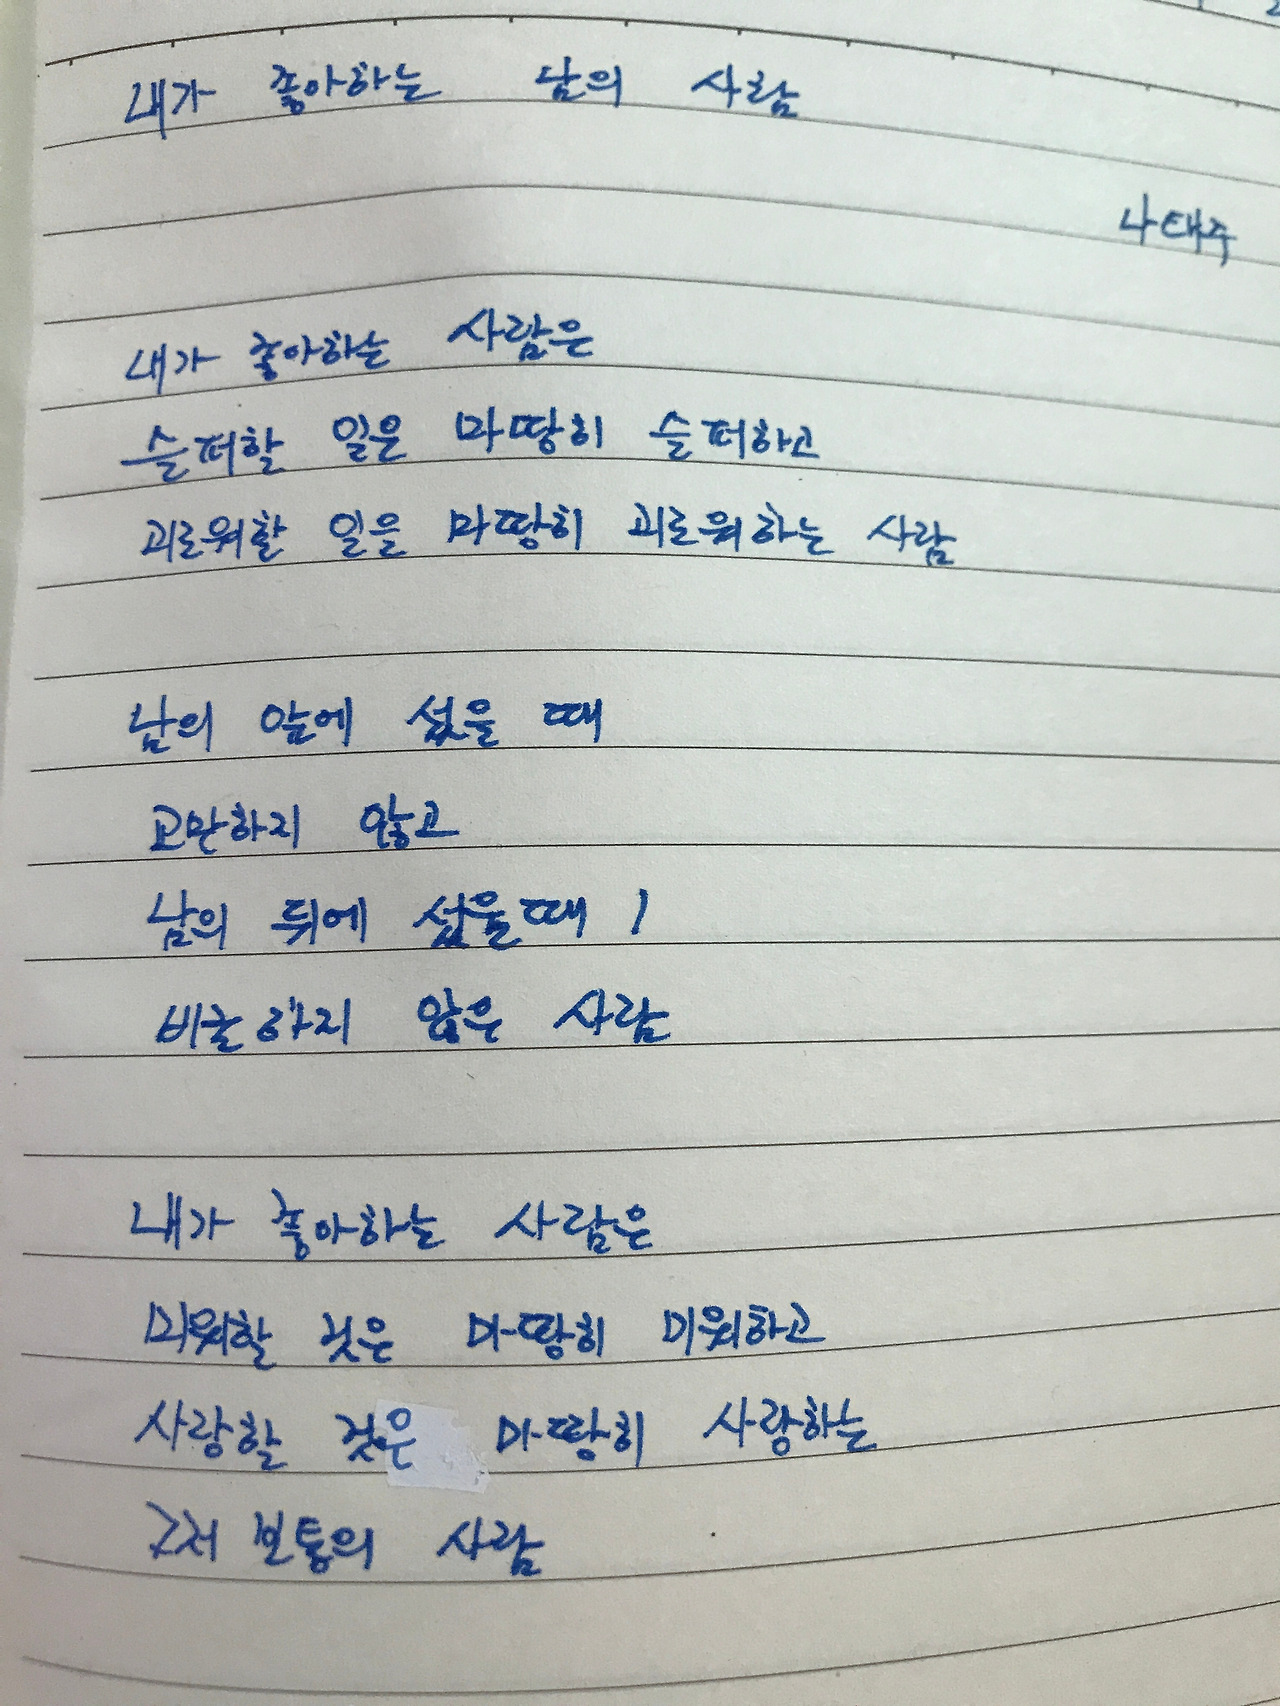 내가 좋아하는 남의 사람
나태주
내가 좋아하는 사람은
슬퍼할 일은 마땅히 슬퍼하고
괴로워할 일을 마땅히 괴로워하는 사람
남의 앞에 섰을 때
교만하지 않고
남의 뒤에 섰을때
비굴하지 않은 사람
내가 좋아하는 사람은
미워할 것은 마땅히 미워하고
사랑할 것은 마땅히 사랑하는
그저 보통의 사람